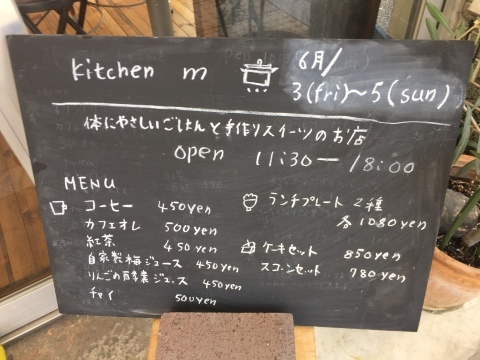 Kitchen m
6月/
3(fri)～5(sun)
体にやさしいごはんと手作りスイーツのお店
open 11:30ー18:00
MENU
コーヒー 450yen
カフェオレ 500yen
紅茶 450yen
自家製梅ジュース 450yen
りんごの酵素ジュース 450yen
チャイ 500yen
ランチプレート 2種
各1080yen
ケーキセット 850yen
スコーンセット 780yen